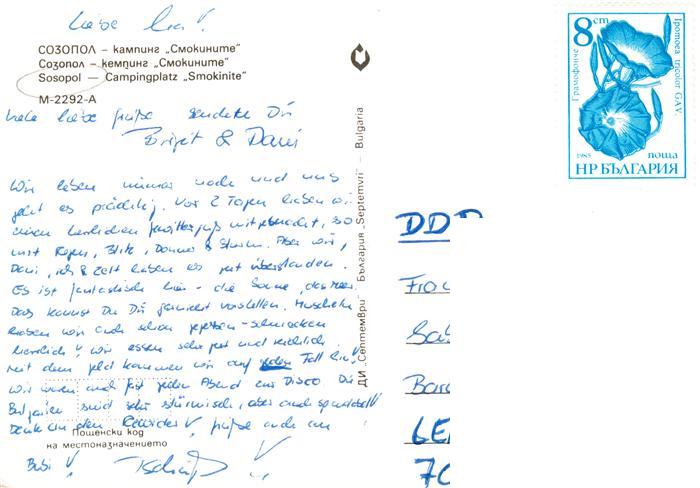 Liebe
СОЗОПОЛ – кампинг „Смокините"
Созопол – кемпинг „Смокините"
Sosopol — Campingplatz „Smokinite"
М-2292-А
liebe Grüße sendet Dir
Birgit & Dani
Wir leben immer noch und uns
geht es prächtig. Vor 2 Tagen haben wir
einen herrlichen mitgemacht, so
mit Regen, Blitz, Donner & Sturm. Aber wir,
Dani, ich & Zelt haben es gut überstanden.
Es ist fantastisch hier – die Sonne, das Meer.
Das kannst Du Dir garnicht vorstellen. Muscheln
haben wir auch schon gegessen – schmecken
herrlich! Wir essen sehr gut und reichlich.
Mit dem Geld kommen wir auf jeden Fall hin!
Wir waren auch fast jeden Abend zur Disco. Die
Bulgaren sind sehr stürmisch, aber auch
Denk an den Grüße auch
Пощенски код
на местоназначението
ДИ „Септември" България „Septemvri" — Bulgaria
8 ст
Грамофонче
Ipomoea tricolor CAV.
1985
поща
НР БЪЛГАРИЯ
DDR